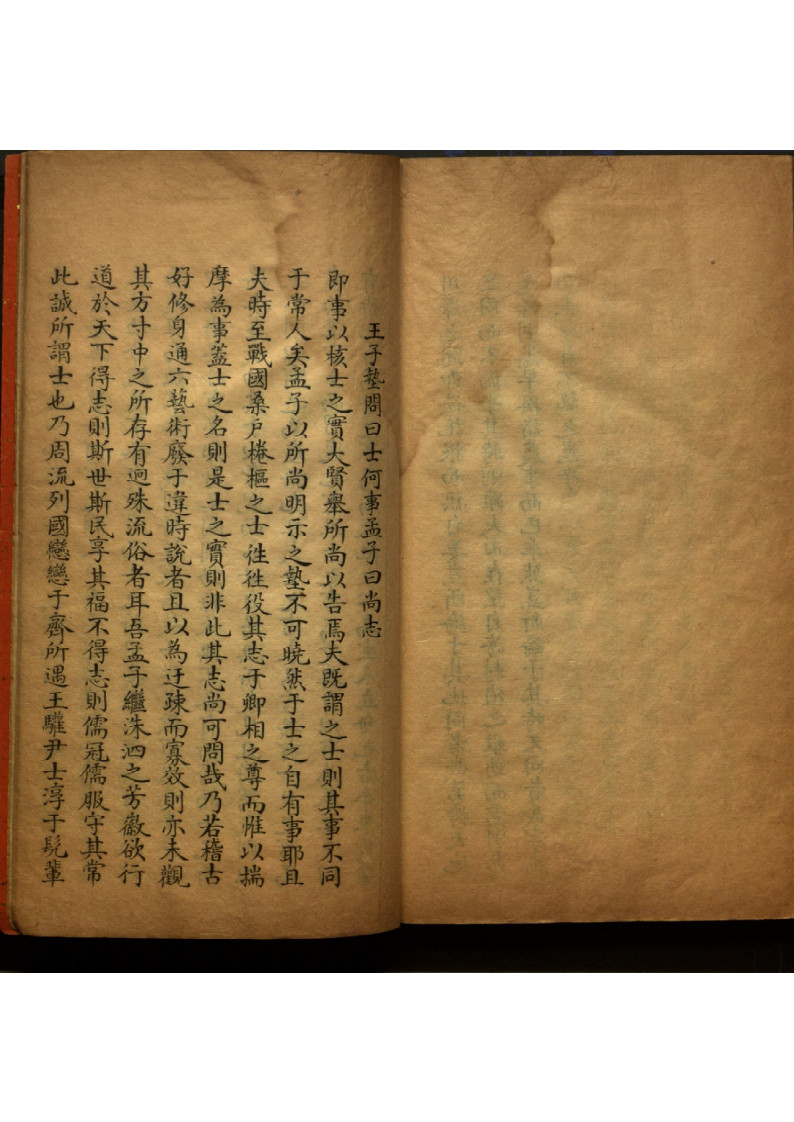 王子墊問曰士何事孟子曰尚志
即事以核士之實大賢舉所尚以告焉夫既謂之士則其事不同
于常人矣孟子以所尚明示之墊不可曉然于士之自有事耶且
夫時至戰國桑戶棬樞之士徃徃役其志于卿相之尊而惟以揣
摩為事蓋士之名則是士之實則非此其志尚可問哉乃若稽古
好修身通六藝術廢于違時說者且以為迂疎而寡效則亦未觀
其方寸中之所存有迥殊流俗者耳吾孟子繼洙泗之芳徽欲行
道於天下得志則斯世斯民享其福不得志則儒冠儒服守其常
此誠所謂士也乃周流列國戀戀于齊所遇王驩尹士淳于髡輩